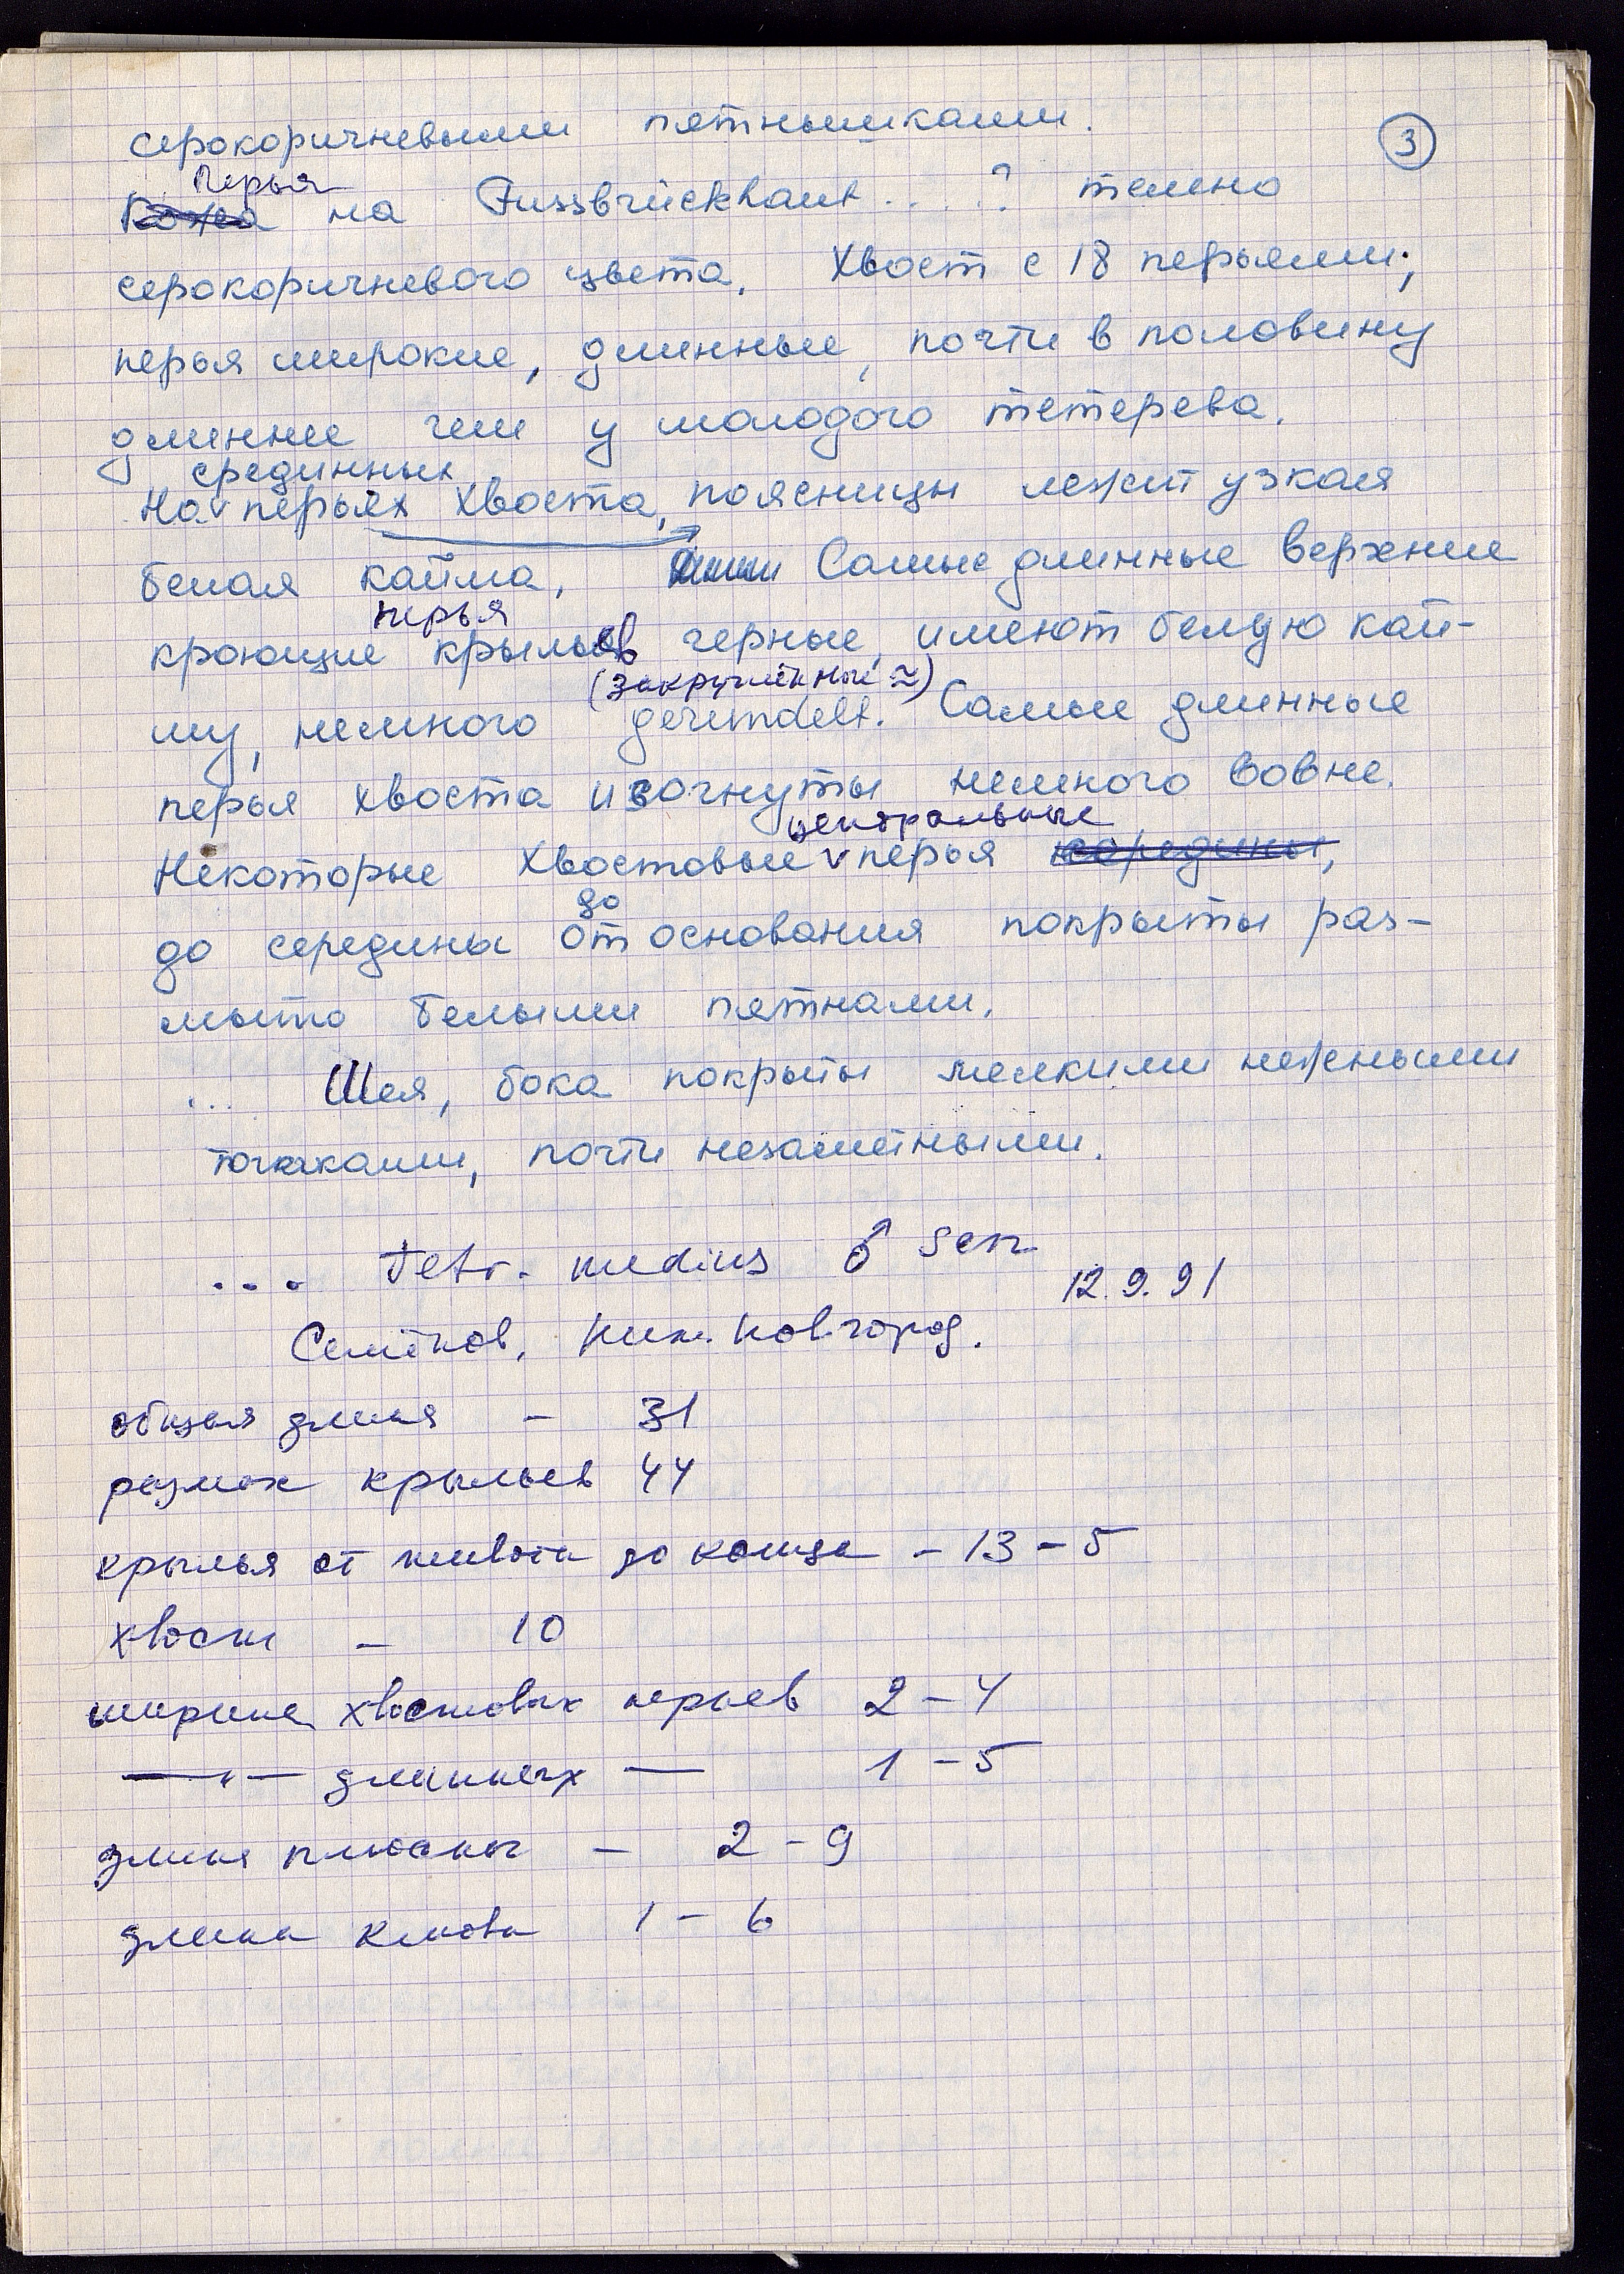 3
серокоричневыми пятнышками.
Перья
Кожа на Fussbrückhaut . . . ? темно
серокоричневого цвета. Хвост с 18 перьями;
перья широкие, длинные, почти в половину
длиннее чем у молодого тетерева.
срединных
На перьях хвоста, поясницы лежит узкая
белая кайма, Самые длинные верхние
перья
кроющие крыльев черные, имеют белую кай-
(закруглённые ≈)
му, немного gerundelt. Самые длинные
перья хвоста изогнуты немного вовне.
центральные
Некоторые хвостовые v перья середины,
до
до середины от основания покрыты раз-
мыто белыми пятнами.
... Шея, бока покрыты мелкими нежными
точками, почти незаметными.
... Tetr. medius ♂ sen
12.9.91
Семёнов, Ниж. Новгород.
общая длина – 31
размах крыльев 44
крылья от живота до конца – 13 – 5
хвост – 10
ширина хвостовых перьев 2 – 4
—„— длинных — 1 – 5
длина плюсны – 2 – 9
длина клюва 1 – 6